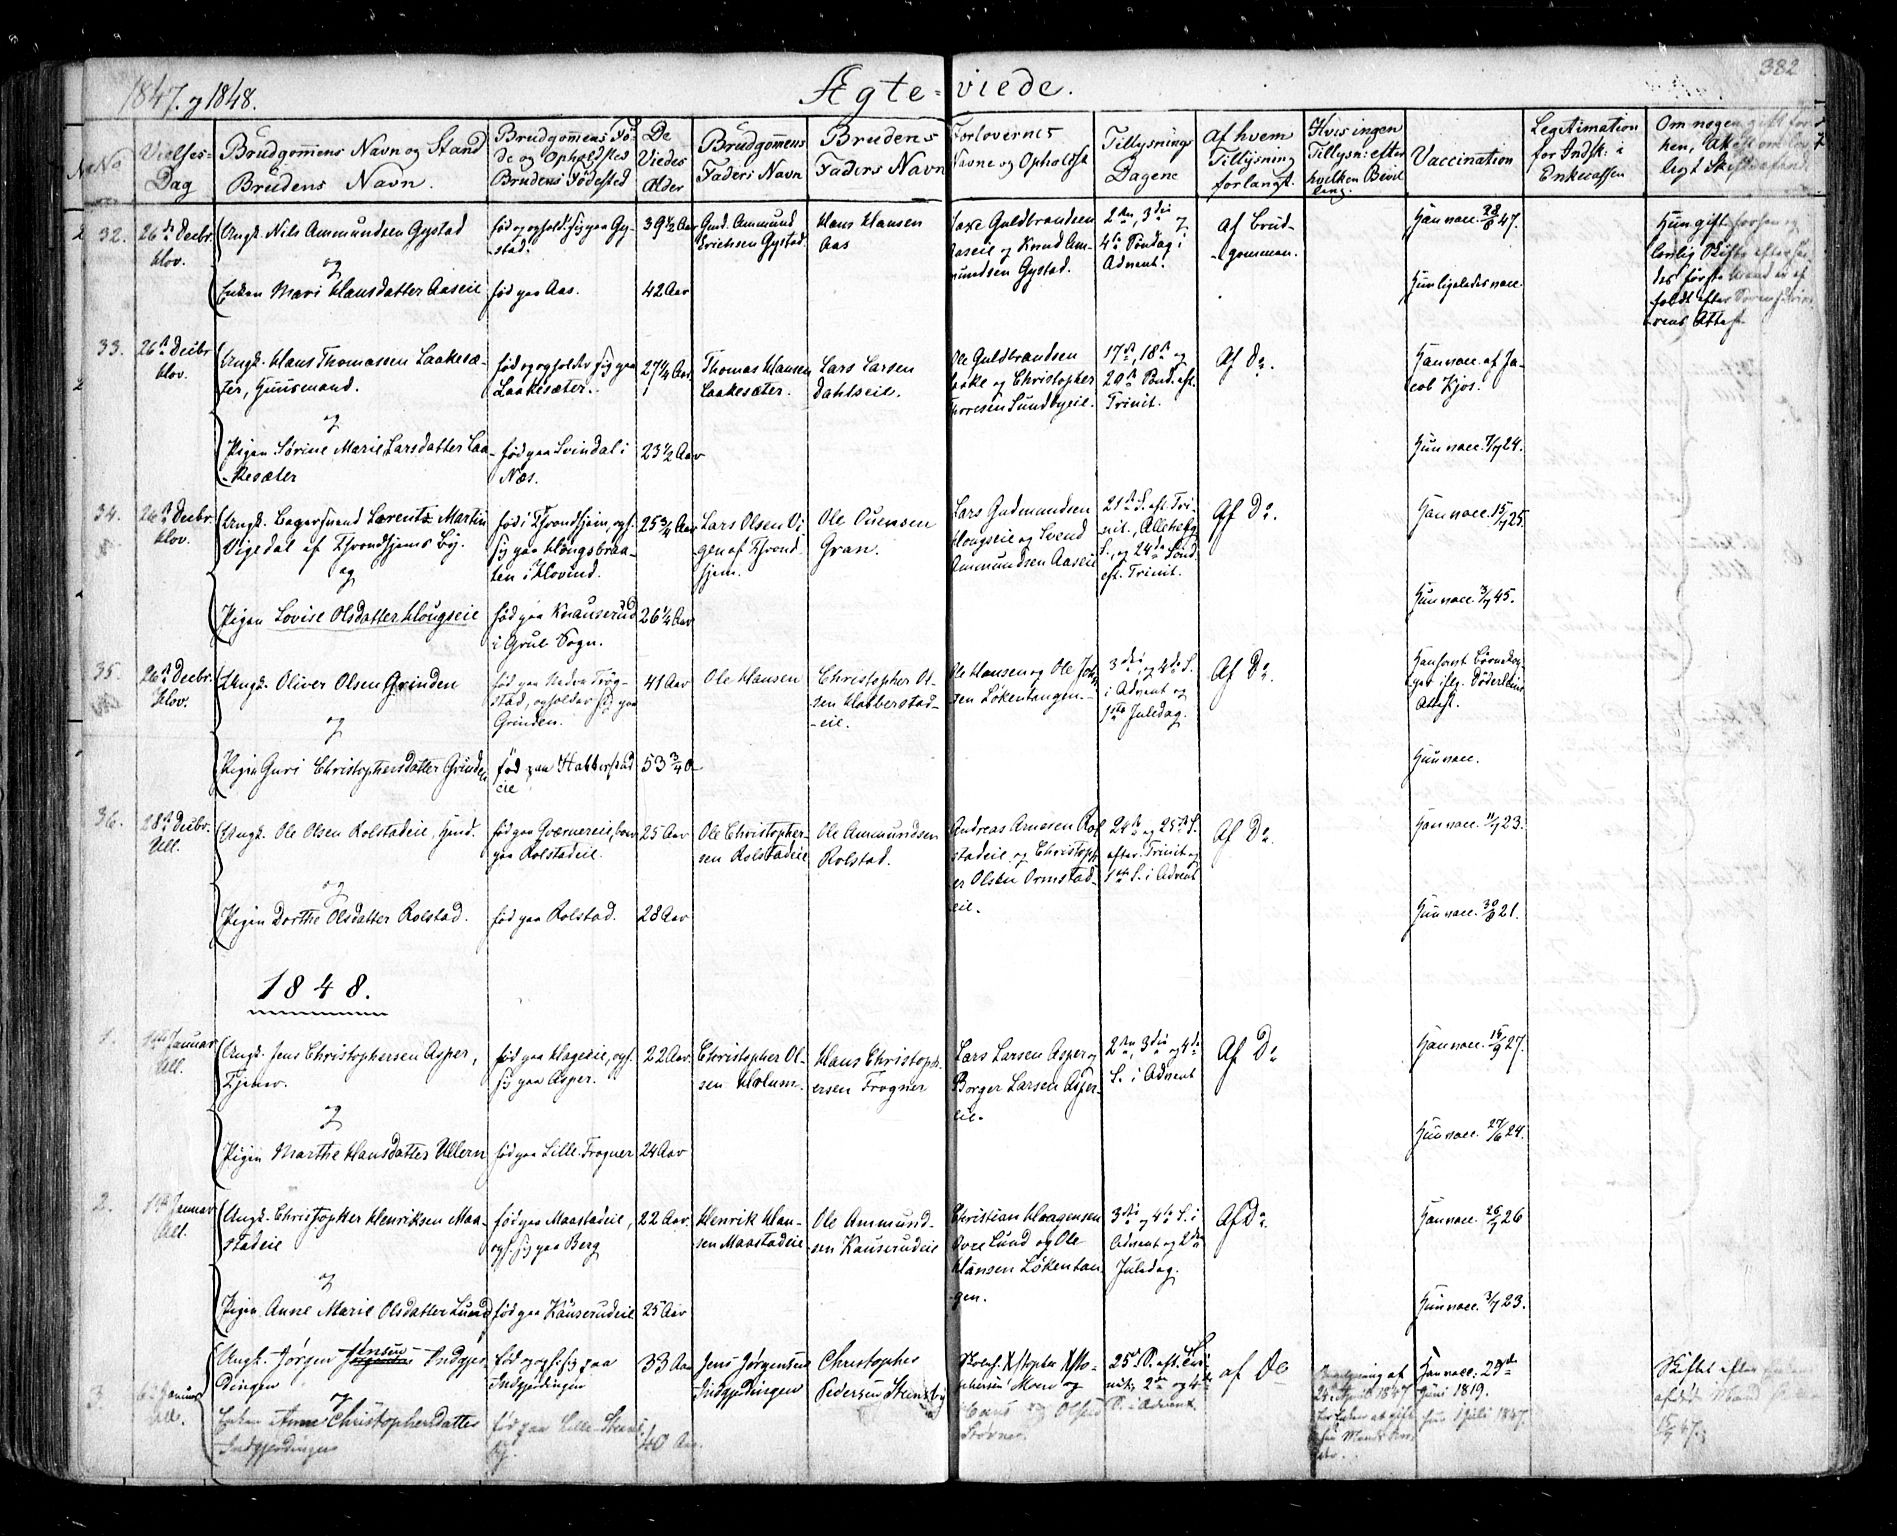 1847. og 1848.
Ægte-viede.
382
No
Vielses-Dag
Brudgommens Navn og Stand
Brudens Navn.
Brudgommens Fø-
de og Opholdsted
Brudens Fødested
De
Viedes
Alder
Brudgommens
Faders Navn
Brudens
Faders Navn
Forlovernes
Navne og Opholdst.
Tillysnings
Dagene
Af hvem
Tillysning
forlangt.
Hvis ingen
Tillysn: efter
hvilken Bevil
ling.
Vaccination
Legitimation
for Indsk: i
Enkecassen
32.
26de Decbr.
Hov.
Ungk. Nils Ammundsen Gystad
og
Enken Mari Hansdatter Aaseie
født og ophold. sig paa Gy-
stad.
født paa Aas.
39 1/2 Aar
42 Aar
Gmd. Ammund
Erichsen Gystad
Hans Hansen
Aas
Guldbrandsen
Aaseie og Knud Am-
mundsen Gystad.
2den, 3die og
4de Søndag i
Advent.
Af Brud-
gommen.
Han vacc. 28/8 47.
Hun ligeledes vacc.
Hun gift forhen og
lovlig Skifte efter hen-
des første Mand er af
holdt efter Sorenskriv
rens Attest
33.
26de Decbr
Hov.
Ungk. Hans Thomassen Laakesæ-
ter, Huusmand.
og
Pigen Sørine Marie Larsdatter Laa-
kesæter
født og opholder sig paa
Laakesæter.
født paa Svindal i
Næs.
27 1/4 Aar
23 1/2 Aar
Thomas Hansen
Laakesæter.
Lars Larsen
Dahlseie.
Ole Guldbrandsen
Løke og Christopher
Thoresen Sundbyeie.
17de, 18de og
20de Sønd. eft.
Trinit.
Af Do.
Han vacc. af Ja-
cob Kjos.
Hun vacc. 7/7 24.
34.
26de Decbr.
Hov.
Ungk. Bagersvend Lorentz Martin
Vigedal af Throndhjems By.
og
Pigen Lovise Olsdatter Hougseie
født i Throndhjem, oph.
sig paa Hougsbraa-
ten i Hovind.
født paa Knauserud
i Grue Sogn.
25 3/4 Aar
26 1/4 Aar
Lars Olsen Vi
gen af Thrond
hjem.
Ole Ounsen
Gran.
Lars Gudmundsen
Hougseie og Svend
Ammundsen Aaseie
21de S. eft. Tri-
nit., Alleheg
S., og 24de Sønd.
eft. Trinit.
Af Do.
Han vacc. 15/7 25.
Hun vacc. 3/7 45.
35.
26de Decbr.
Hov.
Ungk. Oliver Olsen Grinden
og
Pigen Guri Christophersdatter Grinden
født paa Nedre Trøg-
stad, opholder sig paa
Grinden.
født paa Habberstad
eie
41 Aar
53 3/4 A
Ole Hansen
Christopher Ol-
sen Habberstad-
eie.
Ole Hansen og Ole Joh
sen Løkentangen
3die og 4de S.
i Advent og
1ste Juledag.
Af Do.
Han havt Børnekop-
per iflg. Döderleins
Attest.
Hun vacc.
36.
28de Decbr.
Ull.
Ungk. Ole Olsen Rolstadeie, Huusd.
og
Pigen Dorthe Olsdatter Rolstad.
født paa Qværnereie, boer
paa Rolstadeie.
født paa Rolstad.
25 Aar
28 Aar
Ole Christopher-
sen Rolstadeie
Ole Ammundsen
Rolstad.
Andreas Arnesen Rol
stadeie og Christoph-
er Olsen Ormstad-
eie.
24de og 25de S.
efter Trinit og
1ste S. i Advent
Af Do.
Han vacc. 11/7 23.
Hun vacc. 30/8 21.
1848.
1.
1ste Januar
Ull.
Ungk. Jens Christophersen Asper,
Tjener.
og
Pigen Marthe Hansdatter Ullern
født paa Hageeie, oph.
sig paa Asper.
født paa Lille Frogner
22 Aar.
24 Aar
Christopher Ol-
sen Holum.
Hans Christoph-
ersen Frogner
Lars Larsen Asper og
Borger Larsen Asper-
eie.
2den, 3die og 4de
S. i Advent
Af Do
Han vacc. 15/9 27.
Hun vacc. 27/6 24.
2.
1ste Januar
Ull.
Ungk. Christopher Henriksen Maa-
stadeie
og
Pigen Anne Marie Olsdatter Lund
født paa Maastadeie,
oph. sig paa Berg
født paa Kauserudeie
22 Aar.
25 Aar
Henrik Han-
sen Maastadeie
Ole Ammund-
sen Kauserudeie
Christian Haagensen
Øvre Lund og Ole
Hansen Løkentan-
gen.
3die og 4de S. i
Advent og 2den
Juledag.
Af Do.
Han vacc. 26/7 26
Hun vacc. 3/7 23.
3
Januar
Ull.
Ungk. Jørgen Jensen Indgjer
dingen
og
Enken Anne Christophersdatter
Indgjerdingen
født og oph. sig paa
Indgjerdingen
født paa Lille Steens
by.
33 Aar
40 Aar.
Jens Jørgensen
Indgjerdingen
Christopher
Pedersen Steensby
Xstopher Xsto-
phersen Moen og
25de S. eft. Tri-
nit, 2den og 4de
S. i Advent
af Do
Han vacc. 23de
Juni 1819.
hun 1 Juli 1847.
Skiftet efter
afdøde Mand